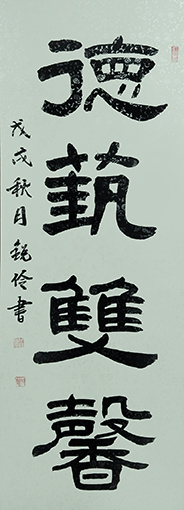 德蓺雙馨
戊戌秋月銳伶書